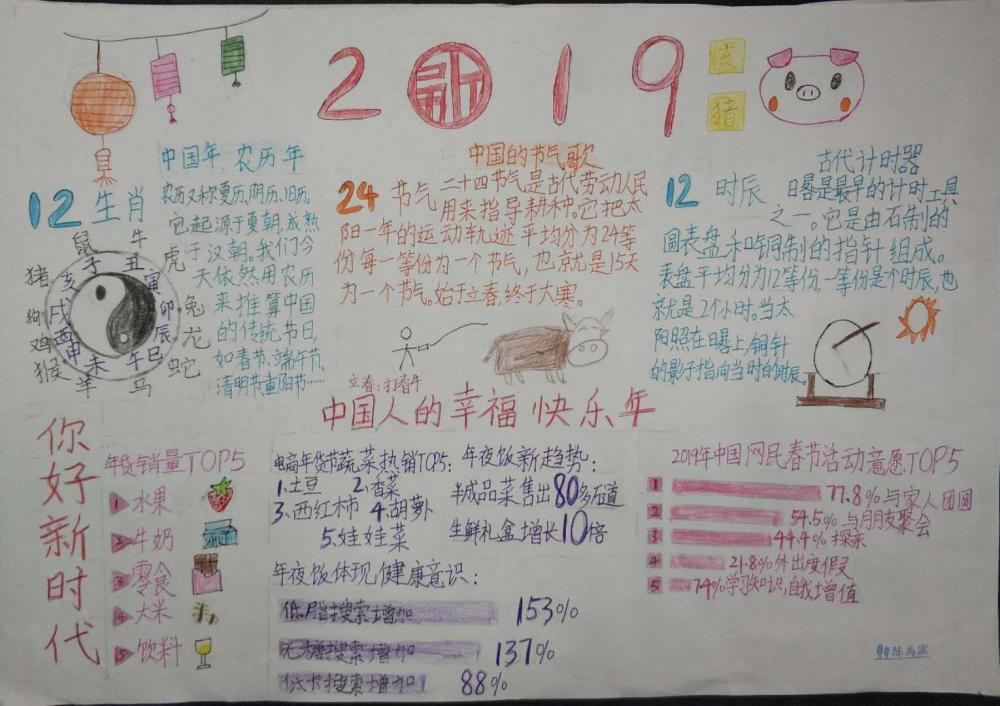 2019
新
亥
猪
中国年 农历年
12生肖
农历又称夏历,阴历、旧历。
它起源于夏朝,成熟
于汉朝。我们今
天依然用农历
来推算中国
的传统节日,
如春节、端午节、
清明节、重阳节……
鼠
牛
虎
兔
龙
蛇
马
羊
猴
鸡
狗
猪
子
丑
寅
卯
辰
巳
午
未
申
酉
戌
亥
中国的节气歌
24 节气 二十四节气是古代劳动人民
用来指导耕种。它把太
阳一年的运动轨迹平均分为24等
份每一等份为一个节气,也就是15天
为一个节气。始于立春,终于大寒。
立春:打春牛
古代计时器
12 时辰 日晷是最早的计时工具
之一。它是由石制的
圆表盘和铜制的指针组成。
表盘平均分为12等份一等份是个时辰,也
就是2个小时。当太
阳照在日晷上,铜针
的影子指向当时的时辰。
中国人的幸福快乐年
你好新时代
年货销量TOP5
1 水果
2 牛奶
3 零食
4 大米
5 饮料
电商年货节蔬菜热销TOP5:
1.土豆 2.香菜
3.西红柿 4.胡萝卜
5.娃娃菜
年夜饭新趋势:
半成品菜售出80多万道
生鲜礼盒增长10倍
年夜饭体现健康意识:
低脂搜索增加 153%
无糖搜索增加 137%
低卡搜索增加 88%
2019年中国网民春节活动意愿TOP5
1 77.8%与家人团圆
2 54.5%与朋友聚会
3 44.4%探亲
4 21.8%外出度假
5 7.4%学习知识,自我增值